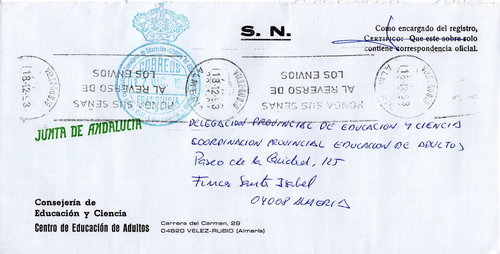 S. N.
Como encargado del registro,
CERTIFICO: Que este sobre solo
contiene correspondencia oficial.
CORREOS
FRANQUICIA
VELEZ-RUBIO
ALMERIA
PONGA SUS SEÑAS
AL REVERSO DE
LOS ENVIOS
VELEZ-RUBIO
ALMERIA
PONGA SUS SEÑAS
AL REVERSO DE
LOS ENVIOS
JUNTA DE ANDALUCIA
DELEGACION PROVINCIAL DE EDUCACION Y CIENCIA
COORDINACION PROVINCIAL EDUCACION DE ADULTOS
Paseo de la Caridad, 125
Finca Santa Isabel
04008 ALMERIA
Consejería de
Educación y Ciencia
Centro de Educación de Adultos
Carrera del Carmen, 29
04820 VELEZ-RUBIO (Almería)